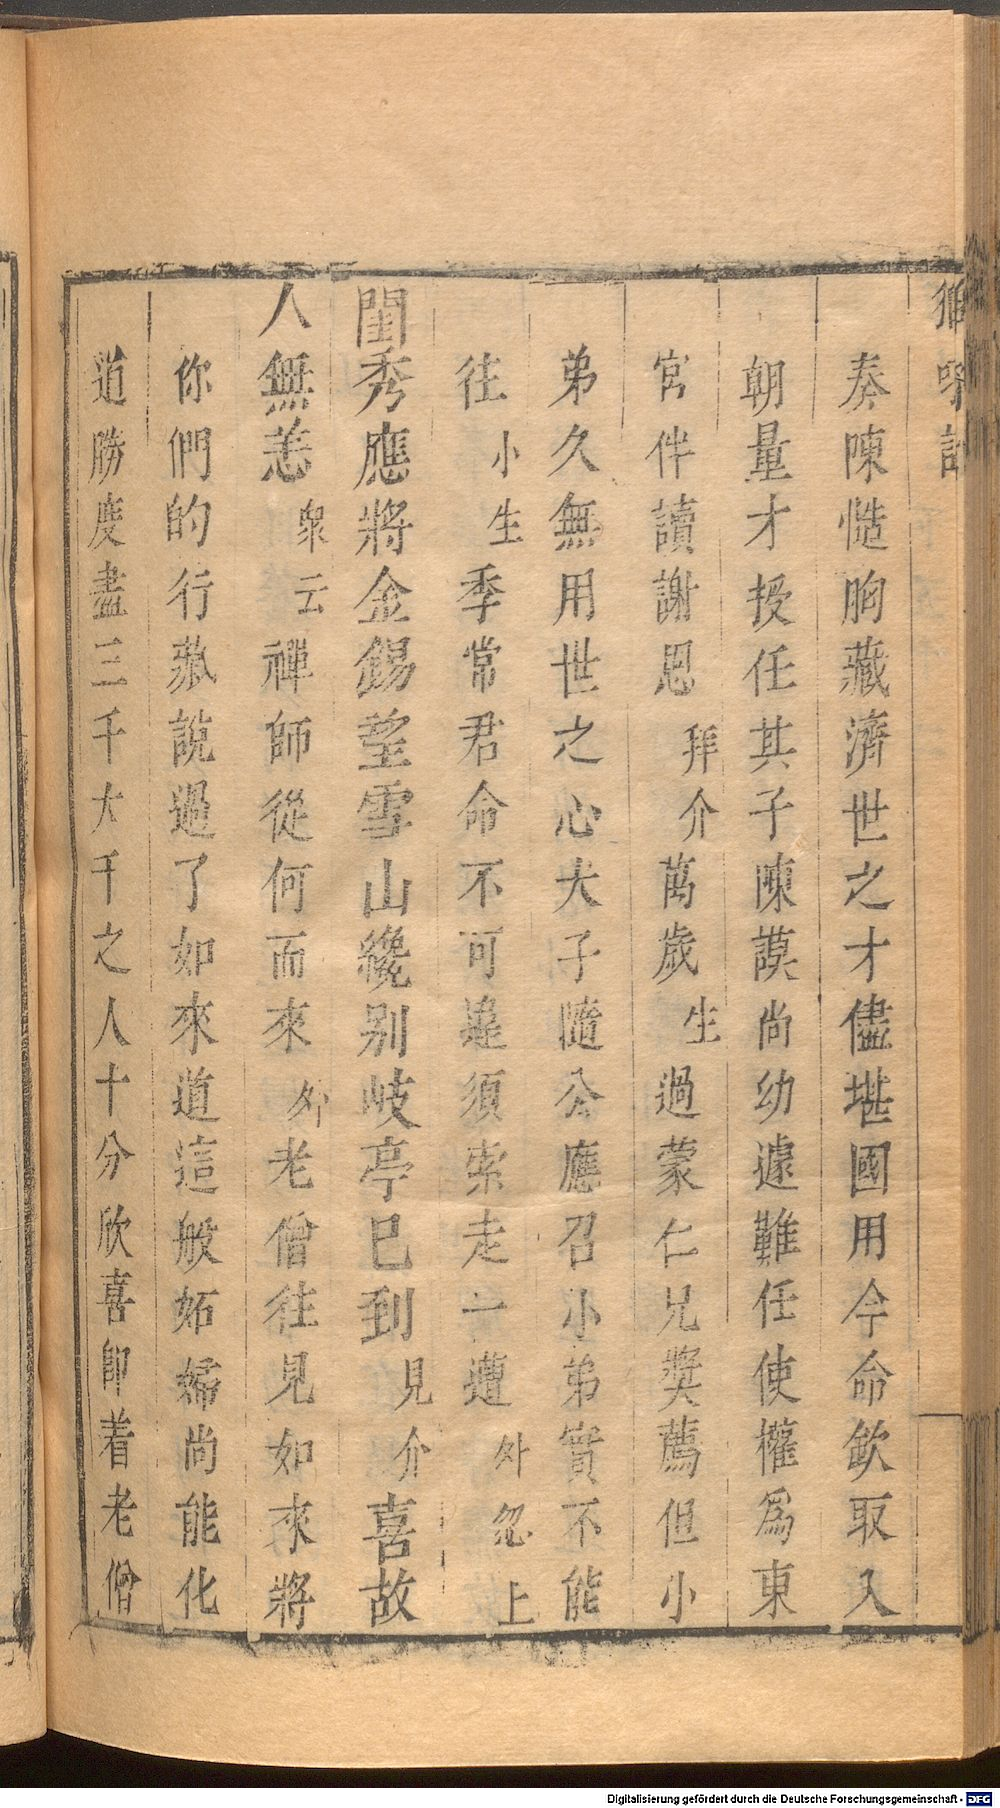 獅吼記
奏陳慥胸藏濟世之才儘堪國用今命欽取入
朝量才授任其子陳謨尚幼遽難任使權爲東
宮伴讀謝恩拜介萬歲生過蒙仁兄奬薦但小
弟久無用世之心犬子隨公應召小弟實不能
往小生季常君命不可違須索走一遭外忽上
閨秀應將金錫墊雪山纔别岐亭巳到見介喜故
人無恙衆云禪師從何而來外老僧往見如來將
你們的行藏說過了如來道這般妬婦尚能化
道勝度盡三千大千之人十分欣喜卽着老僧
Digitalisierung gefördert durch die Deutsche Forschungsgemeinschaft - DFG